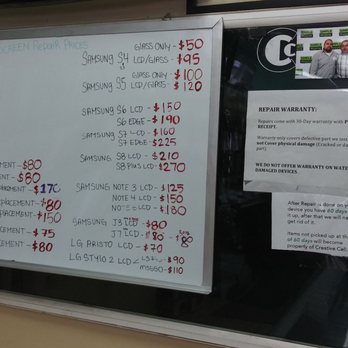 SCREEN Repair PRICES
GLASS ONLY - $50
SAMSUNG S4 LCD/GLASS - $95
GLASS ONLY - $100
SAMSUNG S5 LCD/GLASS - $120
SAMSUNG S6 LCD - $150
S6 EDGE - $190
SAMSUNG S7 LCD - $160
S7 EDGE - $225
SAMSUNG S8 LCD - $210
S8 PLUS LCD - $270
SAMSUNG NOTE 3 LCD - $125
NOTE 4 LCD - $150
NOTE 5 LCD - $180
SAMSUNG J3 LCD - $80
J7 LCD - $80
LG ARISTO LCD - $70
LG STYLO 2 LCD - $90
MS550 - $110
EMENT - $80
- $80
ACEMENT - $170
PLACEMENT - $80
PLACEMENT - $150
CEMENT - $75
CEMENT - $80
REPAIR WARRANTY:
Repairs come with 30-Day warranty with
RECEIPT.
Warranty only covers defective part we
not Cover physical damage (Cracked or
part).
WE DO NOT OFFER WARRANTY ON WATER
DAMAGED DEVICES.
After Repair is done on
device you have 60 days
it up, after that we will
get rid of it.
Items not picked up at
of 60 days will become
property of Creative Cell